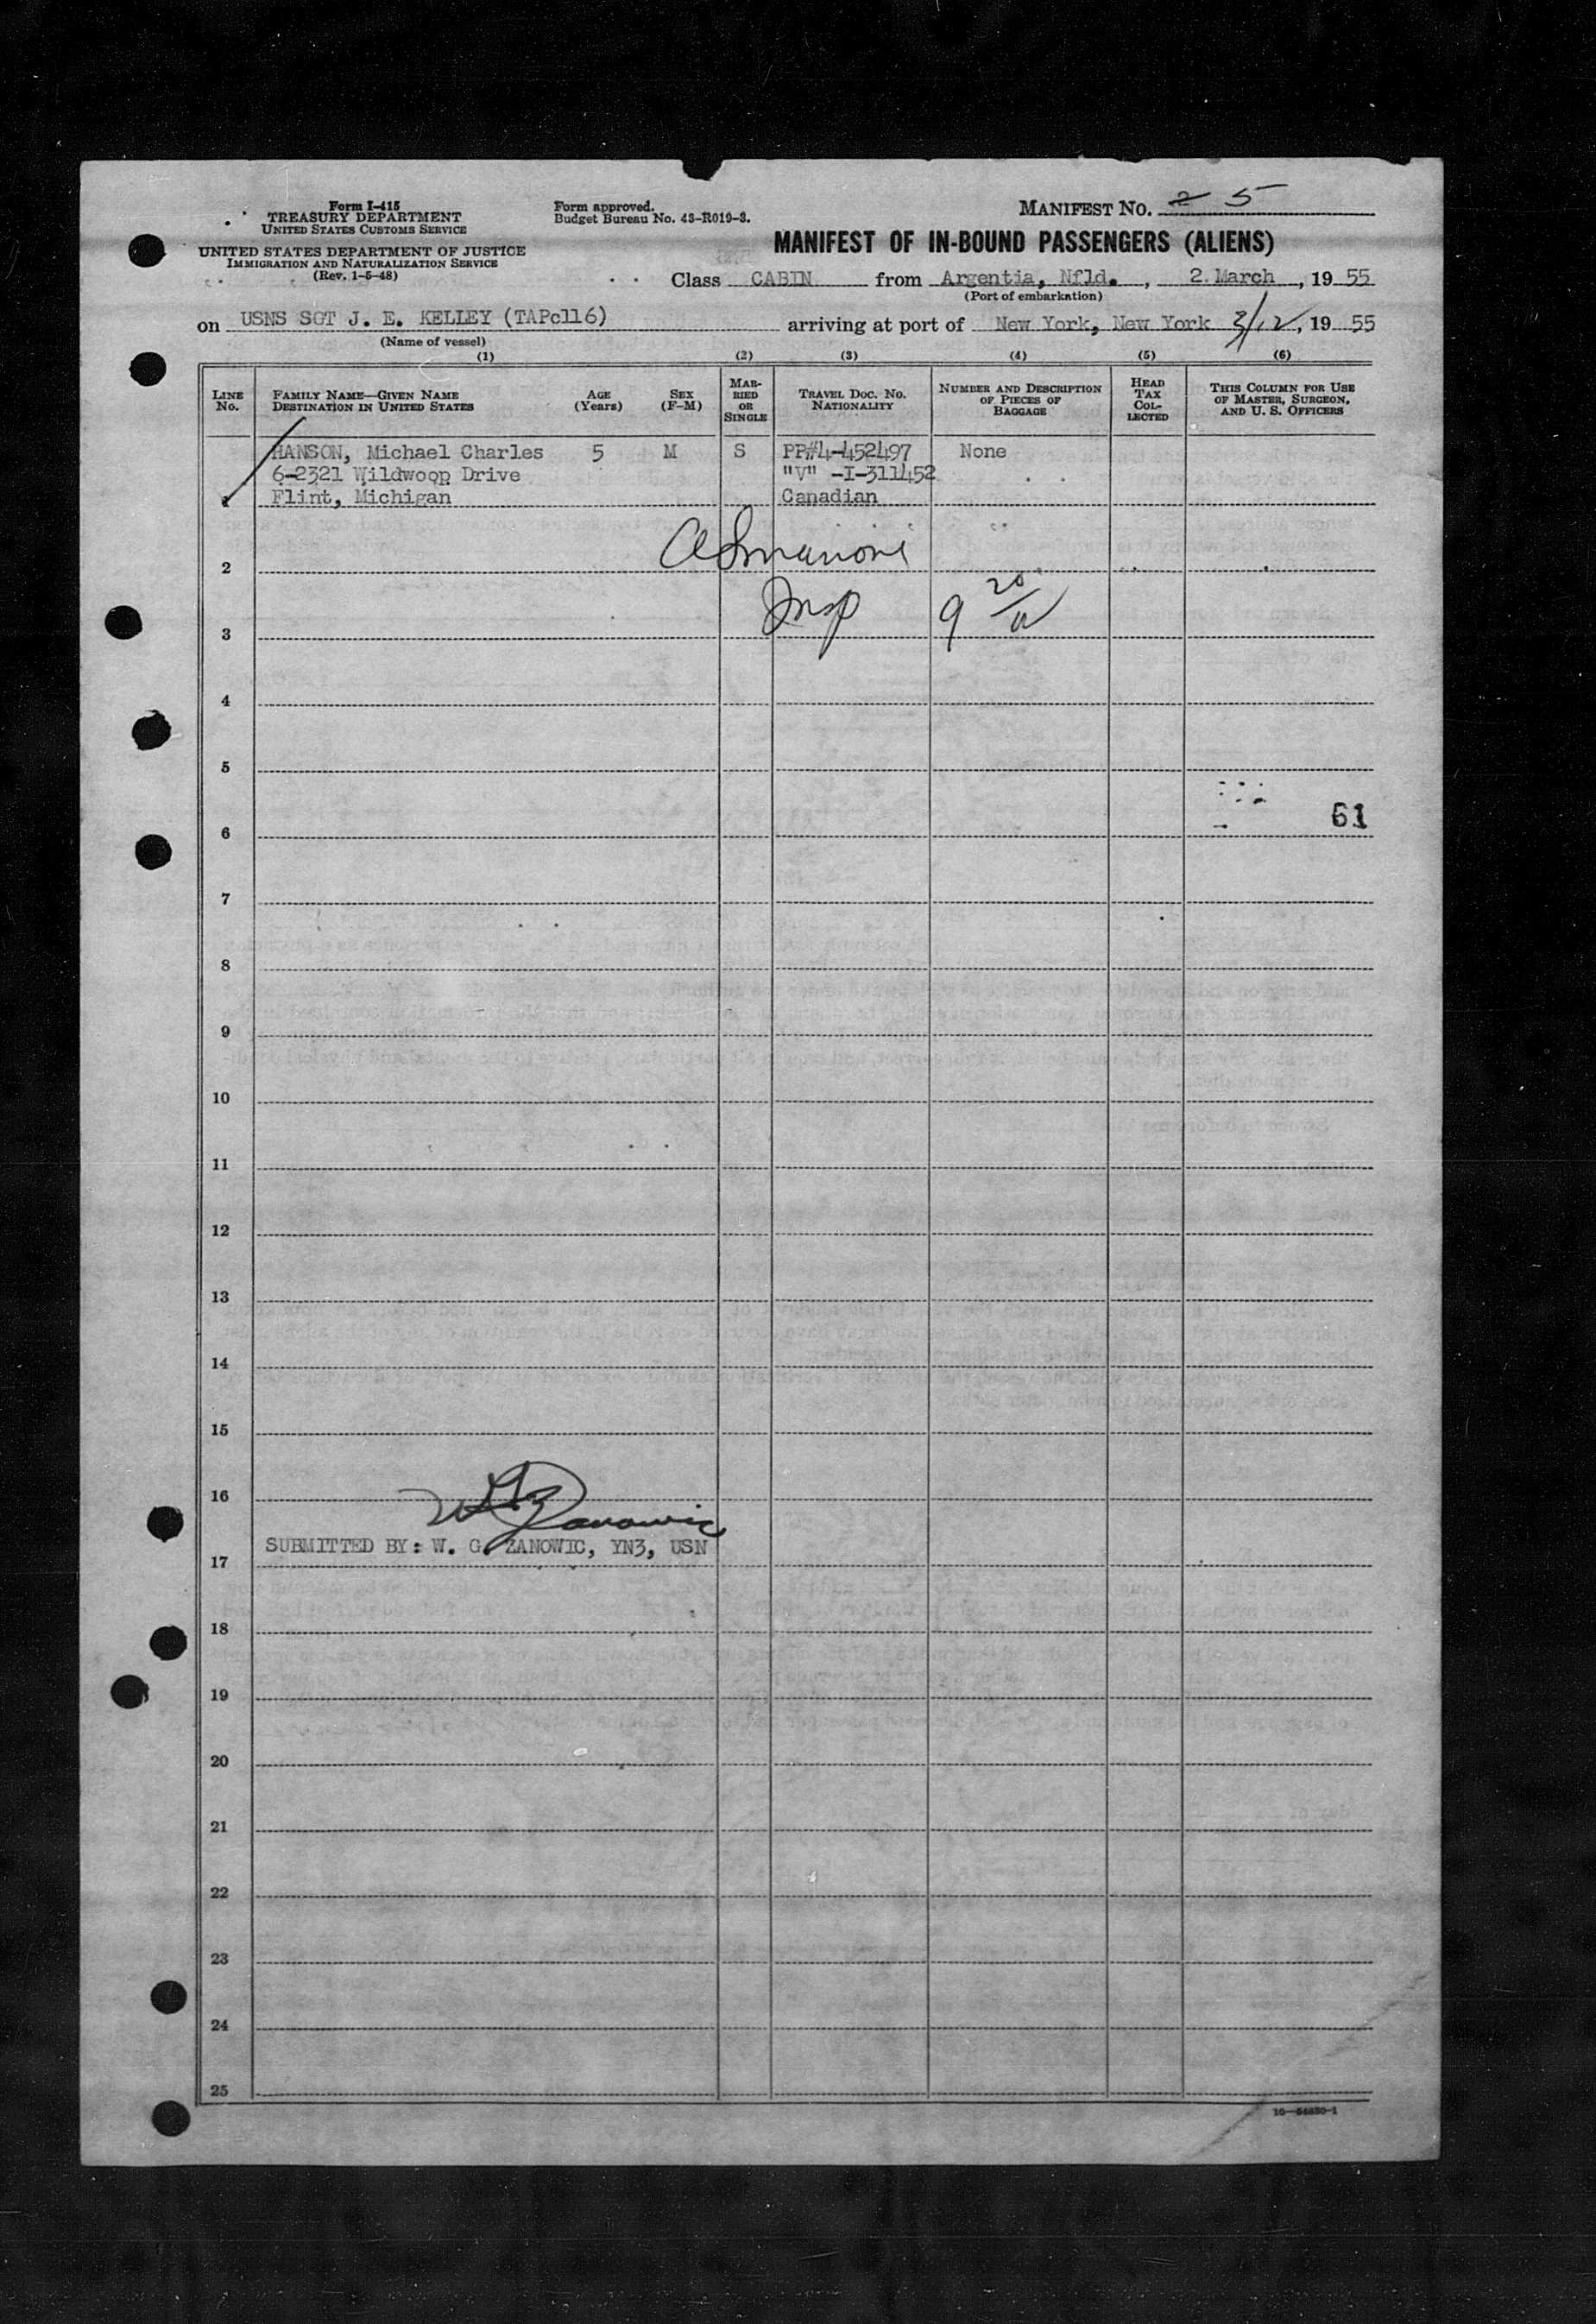 Form I-415
TREASURY DEPARTMENT
UNITED STATES CUSTOMS SERVICE
UNITED STATES DEPARTMENT OF JUSTICE
IMMIGRATION AND NATURALIZATION SERVICE
(Rev. 1-5-48)
Form approved.
Budget Bureau No. 43-R019-3.
MANIFEST NO. 2 5
MANIFEST OF IN-BOUND PASSENGERS (ALIENS)
Class CABIN from Argentia, Nfld. , 2 March , 19 55
(Port of embarkation)
on USNS SGT J. E. KELLEY (TAPc116) arriving at port of New York, New York 3/12, 19 55
(Name of vessel)
(1) (2) (3) (4) (5) (6)
LINE No.
FAMILY NAME—GIVEN NAME
DESTINATION IN UNITED STATES
AGE (Years)
SEX (F-M)
MARRIED OR SINGLE
TRAVEL DOC. NO. NATIONALITY
NUMBER AND DESCRIPTION OF PIECES OF BAGGAGE
HEAD TAX COLLECTED
THIS COLUMN FOR USE OF MASTER, SURGEON, AND U. S. OFFICERS
HANSON, Michael Charles 5 M S PP#4-452497 None
6-2321 Wildwoop Drive "V" -I-311452
1 Flint, Michigan Canadian
2
Insp 9 20
3
4
5
61
6
7
8
9
10
11
12
13
14
15
16
W G Zanowic
SUBMITTED BY: W. G. ZANOWIC, YN3, USN
17
18
19
20
21
22
23
24
25